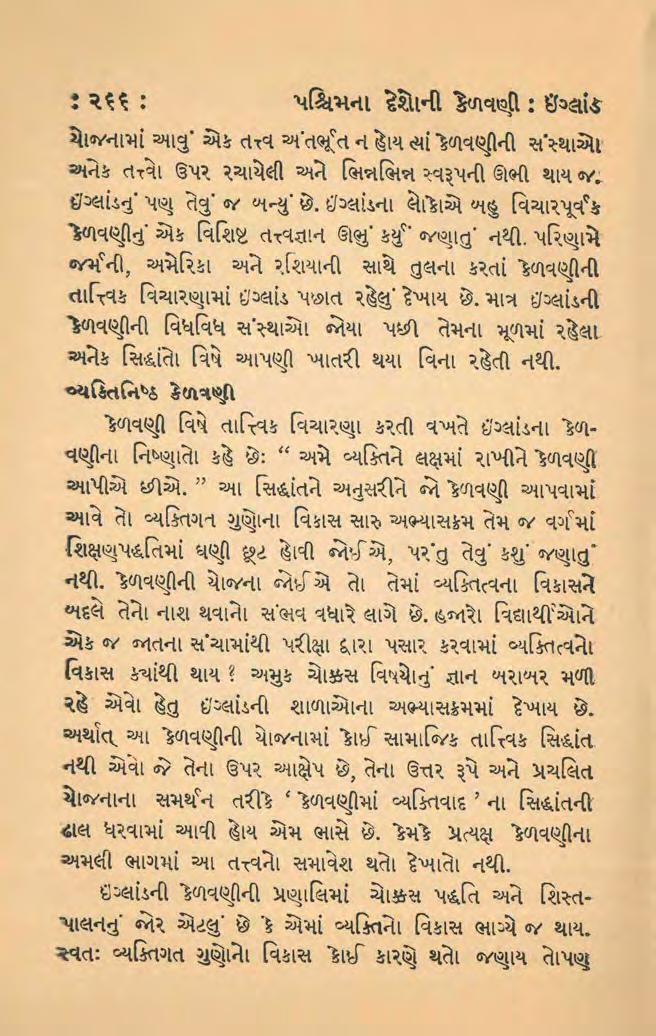 : ૨૬૬ :        પશ્ચિમના દેશોની કેળવણી : ઇંગ્લાંડ
યોજનામાં આવું એક તત્ત્વ અંતર્ભૂત ન હોય ત્યાં કેળવણીની સંસ્થાઓ
અનેક તત્ત્વો ઉપર રચાયેલી અને ભિન્નભિન્ન સ્વરૂપની ઊભી થાય જ.
ઇંગ્લાંડનું પણ તેવું જ બન્યું છે. ઇંગ્લાંડના લોકોએ બહુ વિચારપૂર્વક
કેળવણીનું એક વિશિષ્ટ તત્ત્વજ્ઞાન ઊભું કર્યું જણાતું નથી. પરિણામે
જર્મની, અમેરિકા અને રશિયાની સાથે તુલના કરતાં કેળવણીની
તાત્ત્વિક વિચારણામાં ઇંગ્લાંડ પછાત રહેલું દેખાય છે. માત્ર ઇંગ્લાંડની
કેળવણીની વિધવિધ સંસ્થાઓ જોયા પછી તેમના મૂળમાં રહેલા
અનેક સિદ્ધાંતો વિષે આપણી ખાતરી થયા વિના રહેતી નથી.
વ્યક્તિનિષ્ઠ કેળવણી
કેળવણી વિષે તાત્ત્વિક વિચારણા કરતી વખતે ઇંગ્લાંડના કેળ-
વણીના નિષ્ણાતો કહે છેઃ “ અમે વ્યક્તિને લક્ષમાં રાખીને કેળવણી
આપીએ છીએ. ” આ સિદ્ધાંતને અનુસરીને જો કેળવણી આપવામાં
આવે તો વ્યક્તિગત ગુણોના વિકાસ સારુ અભ્યાસક્રમ તેમ જ વર્ગમાં
શિક્ષણપદ્ધતિમાં ઘણી છૂટ હોવી જોઈએ, પરંતુ તેવું કશું જણાતું
નથી. કેળવણીની યોજના જોઈએ તો તેમાં વ્યક્તિત્વના વિકાસને
બદલે તેનો નાશ થવાનો સંભવ વધારે લાગે છે. હજારો વિદ્યાર્થીઓને
એક જ જાતના સંચામાંથી પરીક્ષા દ્વારા પસાર કરવામાં વ્યક્તિત્વનો
વિકાસ ક્યાંથી થાય ? અમુક ચોક્કસ વિષયોનું જ્ઞાન બરાબર મળી
રહે એવો હેતુ ઇંગ્લાંડની શાળાઓના અભ્યાસક્રમમાં દેખાય છે.
અર્થાત્ આ કેળવણીની યોજનામાં કોઈ સામાજિક તાત્ત્વિક સિદ્ધાંત
નથી એવો જે તેના ઉપર આક્ષેપ છે, તેના ઉત્તર રૂપે અને પ્રચલિત
યોજનાના સમર્થન તરીકે ‘ કેળવણીમાં વ્યક્તિવાદ ’ ના સિદ્ધાંતની
ઢાલ ધરવામાં આવી હોય એમ ભાસે છે. કેમકે પ્રત્યક્ષ કેળવણીના
અમલી ભાગમાં આ તત્ત્વનો સમાવેશ થતો દેખાતો નથી.
ઇંગ્લાંડની કેળવણીની પ્રણાલિમાં ચોક્કસ પદ્ધતિ અને શિસ્ત-
પાલનનું જોર એટલું છે કે એમાં વ્યક્તિનો વિકાસ ભાગ્યે જ થાય.
સ્વતઃ વ્યક્તિગત ગુણોનો વિકાસ કોઈ કારણે થતો જણાય તોપણ